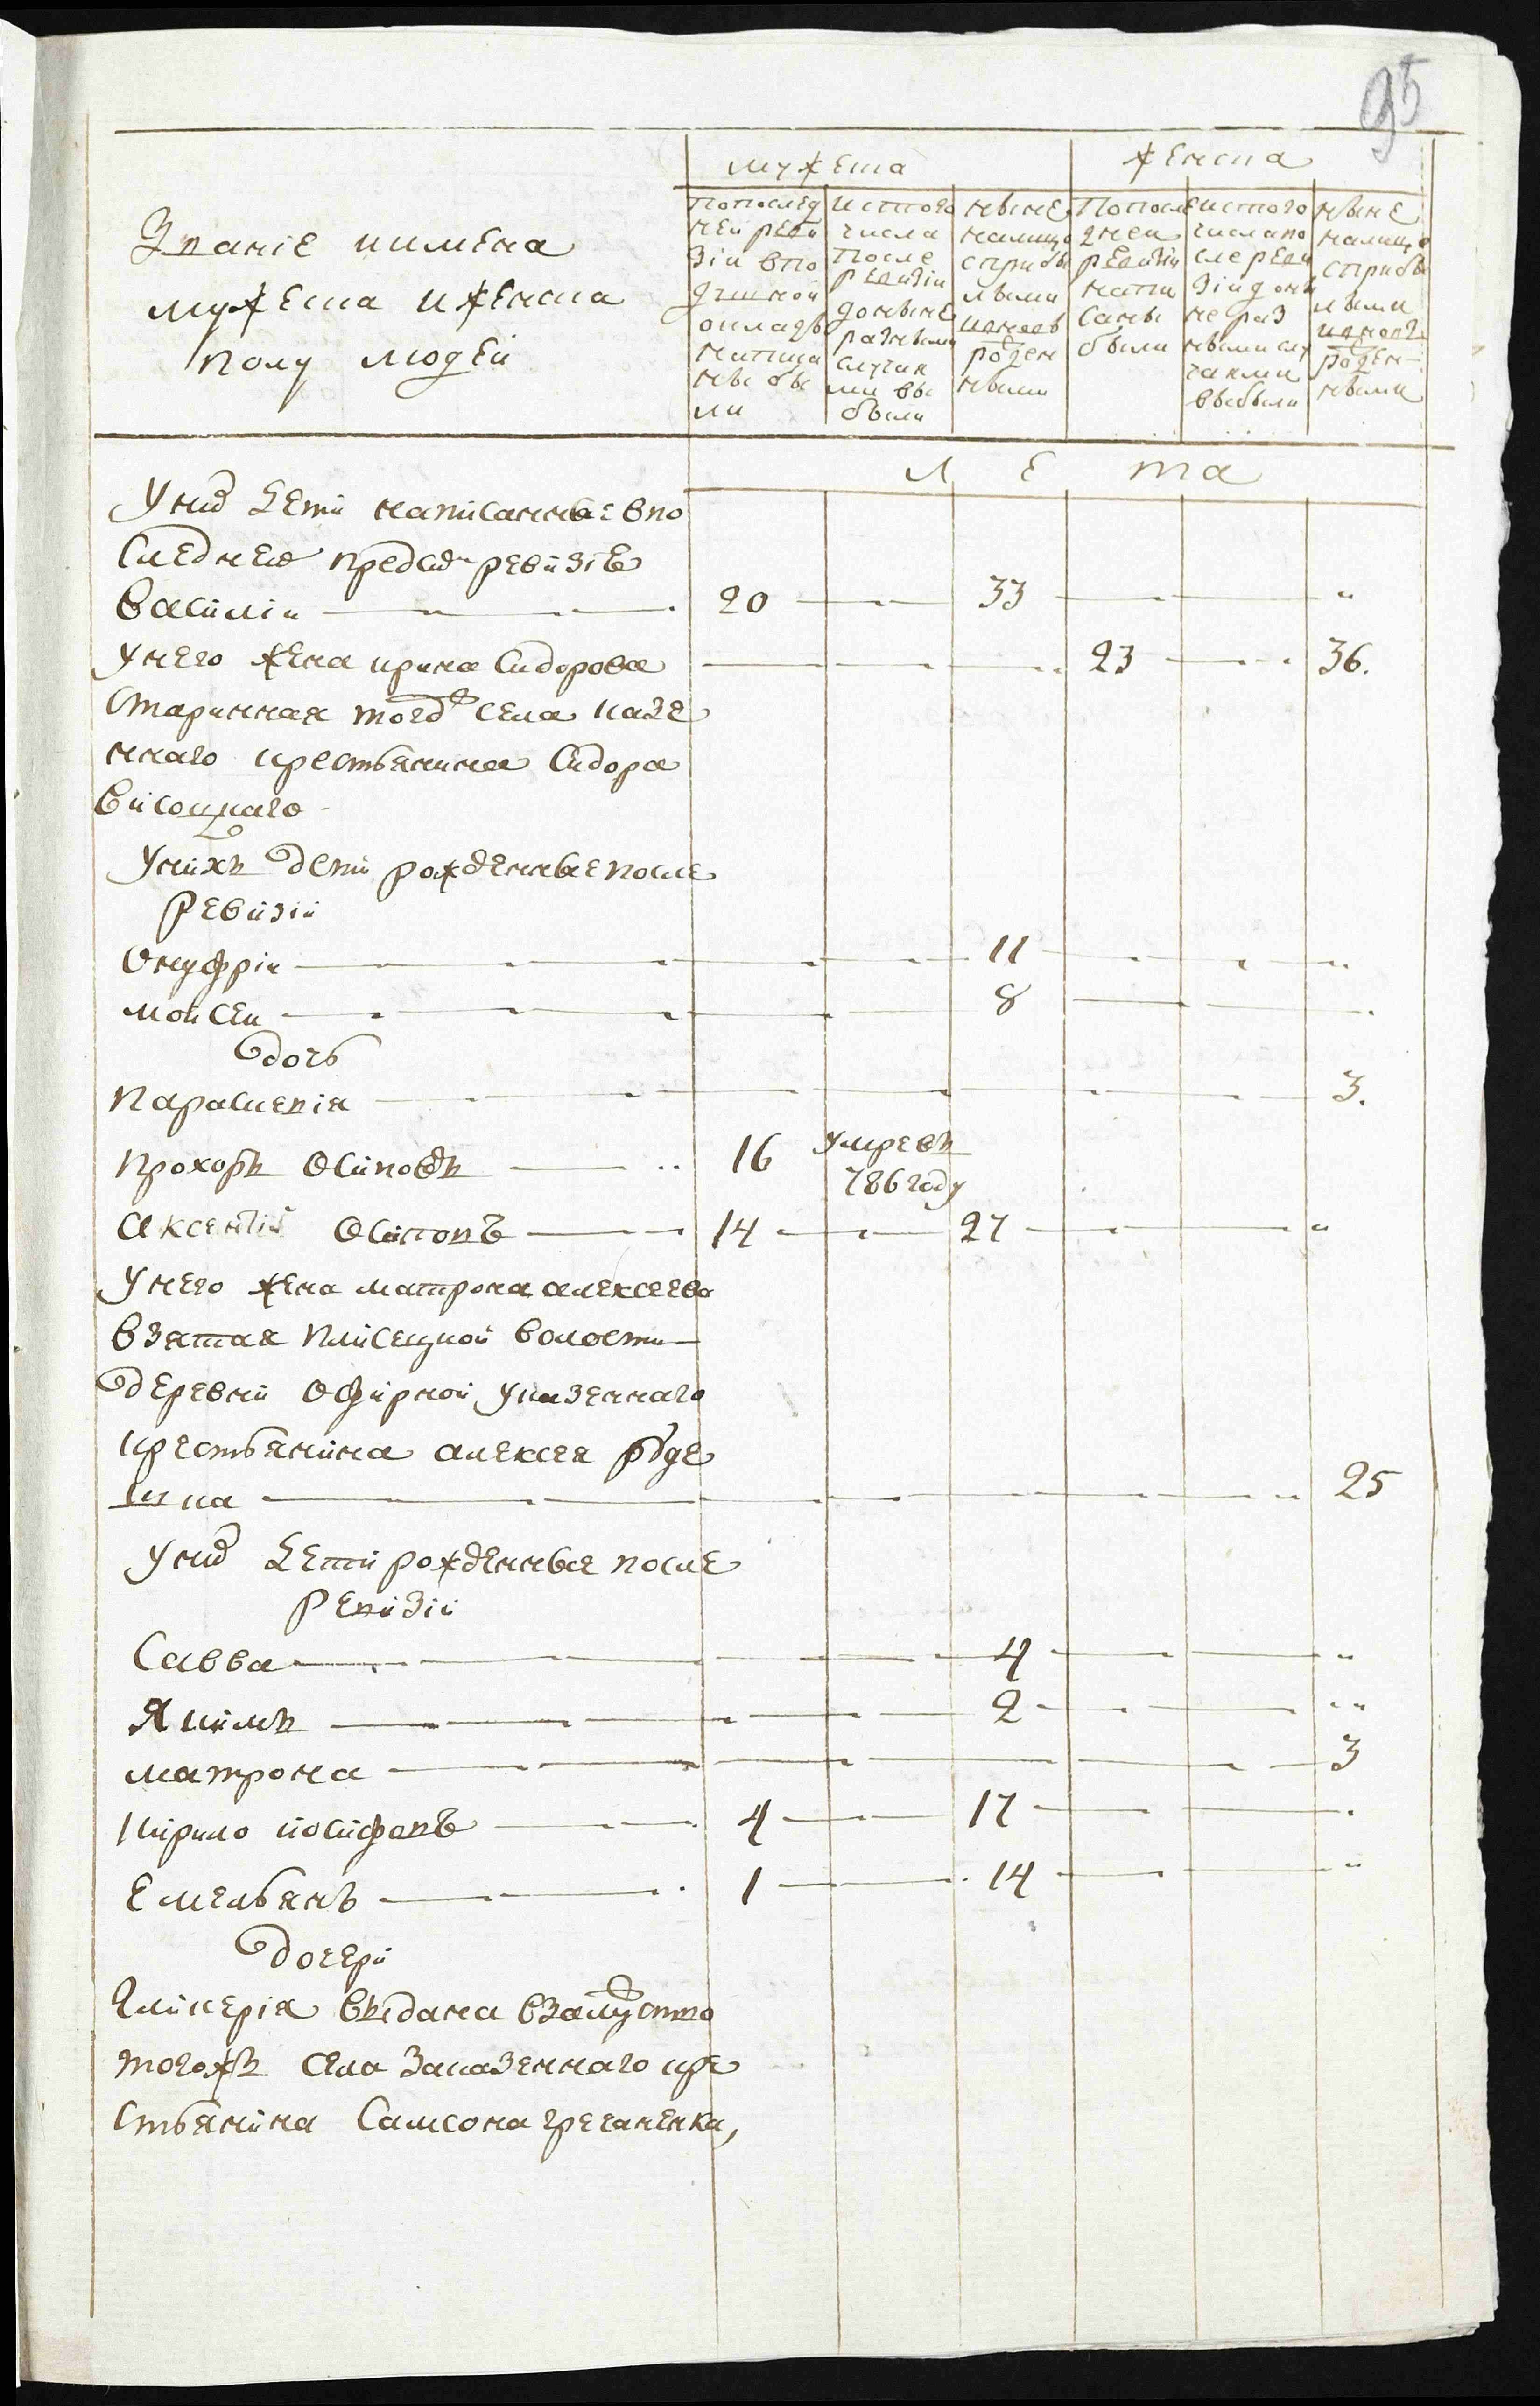 95
мужеска
женска
Звание и имена
мужеска и женска
полу людей
По послед
ней реви
зии в по
душной
окладъ
написа
ны бы
ли
Ис того
числа
после
ревизии
до ныне
разными
случая
ми вы
были
Ныне
налицо
с прибы
лыми
и вновь
рожден
ными
По после
дней
ревизии
напи
саны
были
Ис того
числа по
сле реви
зии до ны
не раз
ными слу
чаями
выбыли
Ныне
налицо
с прибы
лыми
и вновь
рожден
ными
Л е та
У них дети написанные в по
следнею пред сим ревизіе
Василій 20 33 "
У него жена ирина Сидорова 23 36.
Старинная того ж села казе
ннаго крестьянина Сидора
Висоцкаго
У нихъ дети рожденные после
ревизіи
Онуфрій 11 "
Мойсей 8
дочь
Параскевія 3.
Прохоръ Осиповъ 16 умре въ
786 году
Аксентій Осиповъ 14 27 "
У него жена матрона алексеева
Взятая Плисецкой волости
деревни Офирной у казеннаго
крестьянина алексея
ка 25
У них дети рожденные после
ревизіи
Савва 4 "
Якимъ 2 "
матрона 3
Кирило йосифовъ 4 17
Емельянъ 1 14 "
дочери
Гликерія выдана в замужство
тогожъ села за казеннаго кре
стьянина Самсона гречаненка,